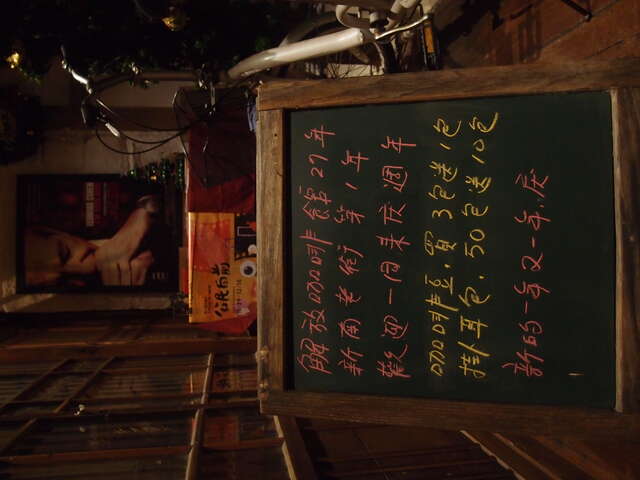 LEONARD COHEN
公民向前
解放咖啡館27年
新南老街第1年
歡迎一同來庆週年
咖啡豆.買3包送1包
掛耳包.50包送10包
新的一年又一年.庆